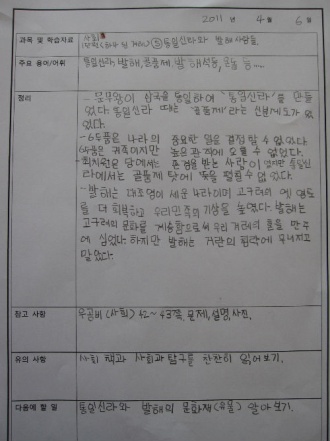 2011 년 4 월 6 일
과목 및 학습자료
사회
③통일신라와 발해 사람들.
주요 용어/어휘
통일신라, 발해, 골품제, 발해석등, 온돌 등…
정리
- 문무왕이 삼국을 통일하여 '통일신라'를 만들
었다. 통일신라 때는 '골품제'라는 신분제도가 있
었다.
- 6두품은 나라의 중요한 일을 결정할 수 없었다
6두품은 귀족이지만 높은 관직에 오를 수 없었다.
최치원은 당에서는 존경을 받는 사람이 었지만 통일신
라에서는 골품제 탓에 뜻을 펼칠 수 없었다.
- 발해는 대조영이 세운 나라이며 고구려의 옛 영토
를 더 회복하고 우리민족의 기상을 높였다. 발해는
고구려의 문화를 계승함으로써 우리 겨레의 혼을 만주
에 심었다. 하지만 발해는 거란의 침략에 무너지고
말았다.
참고 사항
우공비(사회) 42~43쪽 문제, 설명, 사진.
유의 사항
사회 책과 사회과탐구를 찬찬히 읽어보기.
다음에 할 일
통일신라와 발해의 문화재(유물) 알아보기.